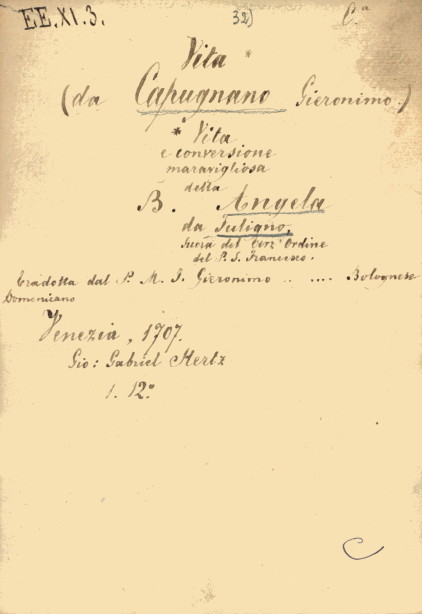 EE.XI.3. 32) C.a
Vita *
(da Capugnano Gieronimo.)
* Vita
e conversione
maravigliosa
della
B. Angela
da Fuligno.
Suora del Terz' Ordine
del P. S. Francesco.
tradotta dal P. M. F. Gieronimo .. .... Bolognese
Domenicano
Venezia, 1707.
Gio: Gabriel Hertz
1. 12°
C